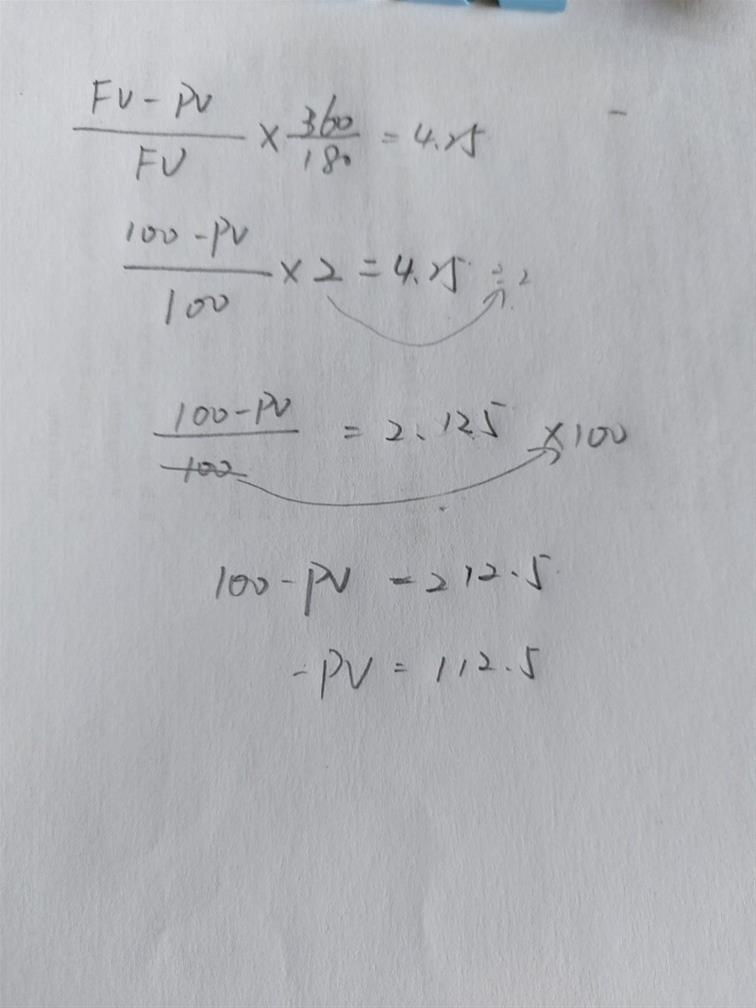 FV - PV / FV × 360 / 180 = 4.25
100 - PV / 100 × 2 = 4.25 ÷ 2
100 - PV / 100 = 2.125 × 100
100 - PV = 212.5
- PV = 112.5